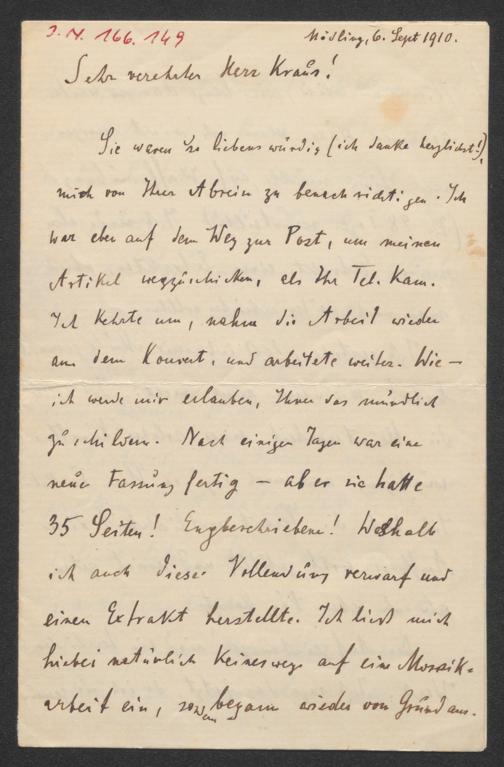 J. N. 166.149
Mödling, 6. Sept 1910.
Sehr verehrter Herr Kraus!
Sie waren so liebenswürdig (ich danke herzlichst!),
mich von Ihrer Abreise zu benachrichtigen. Ich
war eben auf dem Weg zur Post, um meinen
Artikel wegzuschicken, als Ihr Tel. kam.
Ich kehrte um, nahm die Arbeit wieder
aus dem Kouvert, und arbeitete weiter. Wie –
ich werde mir erlauben, Ihnen das mündlich
zu schildern. Nach einigen Tagen war eine
neue Fassung fertig – aber sie hatte
35 Seiten! Engbeschriebene! Weshalb
ich auch diese Vollendung verwarf und
einen Extrakt herstellte. Ich ließ mich
hiebei natürlich keineswegs auf eine Mosaik-
arbeit ein, begann wieder von Grund aus.